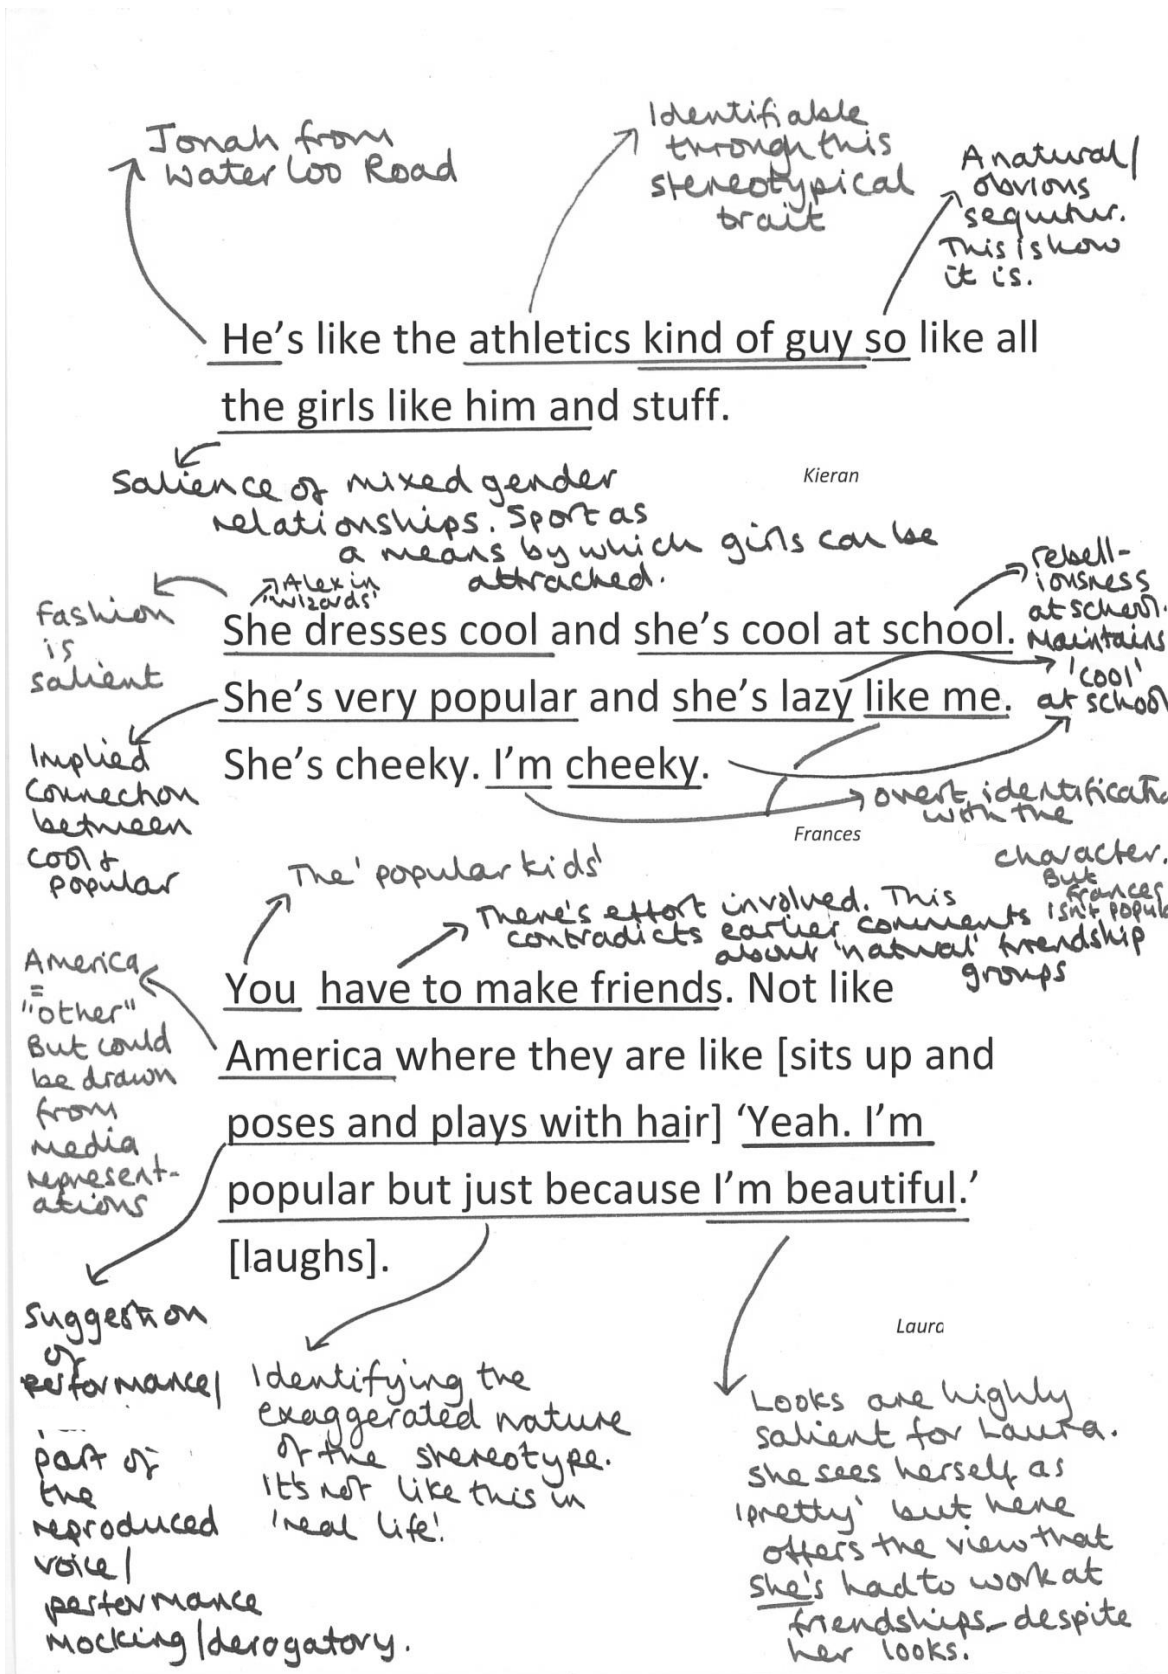 Jonah from
Waterloo Road
Identifiable
through this
stereotypical
trait
A natural/
obvious
sequitur.
This is how
it is.
He's like the athletics kind of guy so like all
the girls like him and stuff.
Kieran
Salience of mixed gender
relationships. Sport as
a means by which girls can be
attracted.
Fashion
is
salient
Alex in
'Wizards'
rebell-
iousness
at school.
Maintains
'cool'
at school
She dresses cool and she's cool at school.
She's very popular and she's lazy like me.
She's cheeky. I'm cheeky.
Implied
connection
between
cool &
popular
overt identificatio
with the
character.
But
Frances
isn't popul
Frances
The 'popular kids'
There's effort involved. This
contradicts earlier comments
about 'natural' friendship
groups
America
=
"other"
But could
be drawn
from
media
represent-
ations
You have to make friends. Not like
America where they are like [sits up and
poses and plays with hair] ‘Yeah. I'm
popular but just because I'm beautiful.’
[laughs].
Laura
Suggestion
of
performance/
part of
the
reproduced
voice/
performance
Mocking/derogatory.
Identifying the
exaggerated nature
of the stereotype.
It's not like this in
'real life'.
Looks are highly
salient for Laura.
She sees herself as
'pretty' but here
offers the view that
she's had to work at
friendships - despite
her looks.